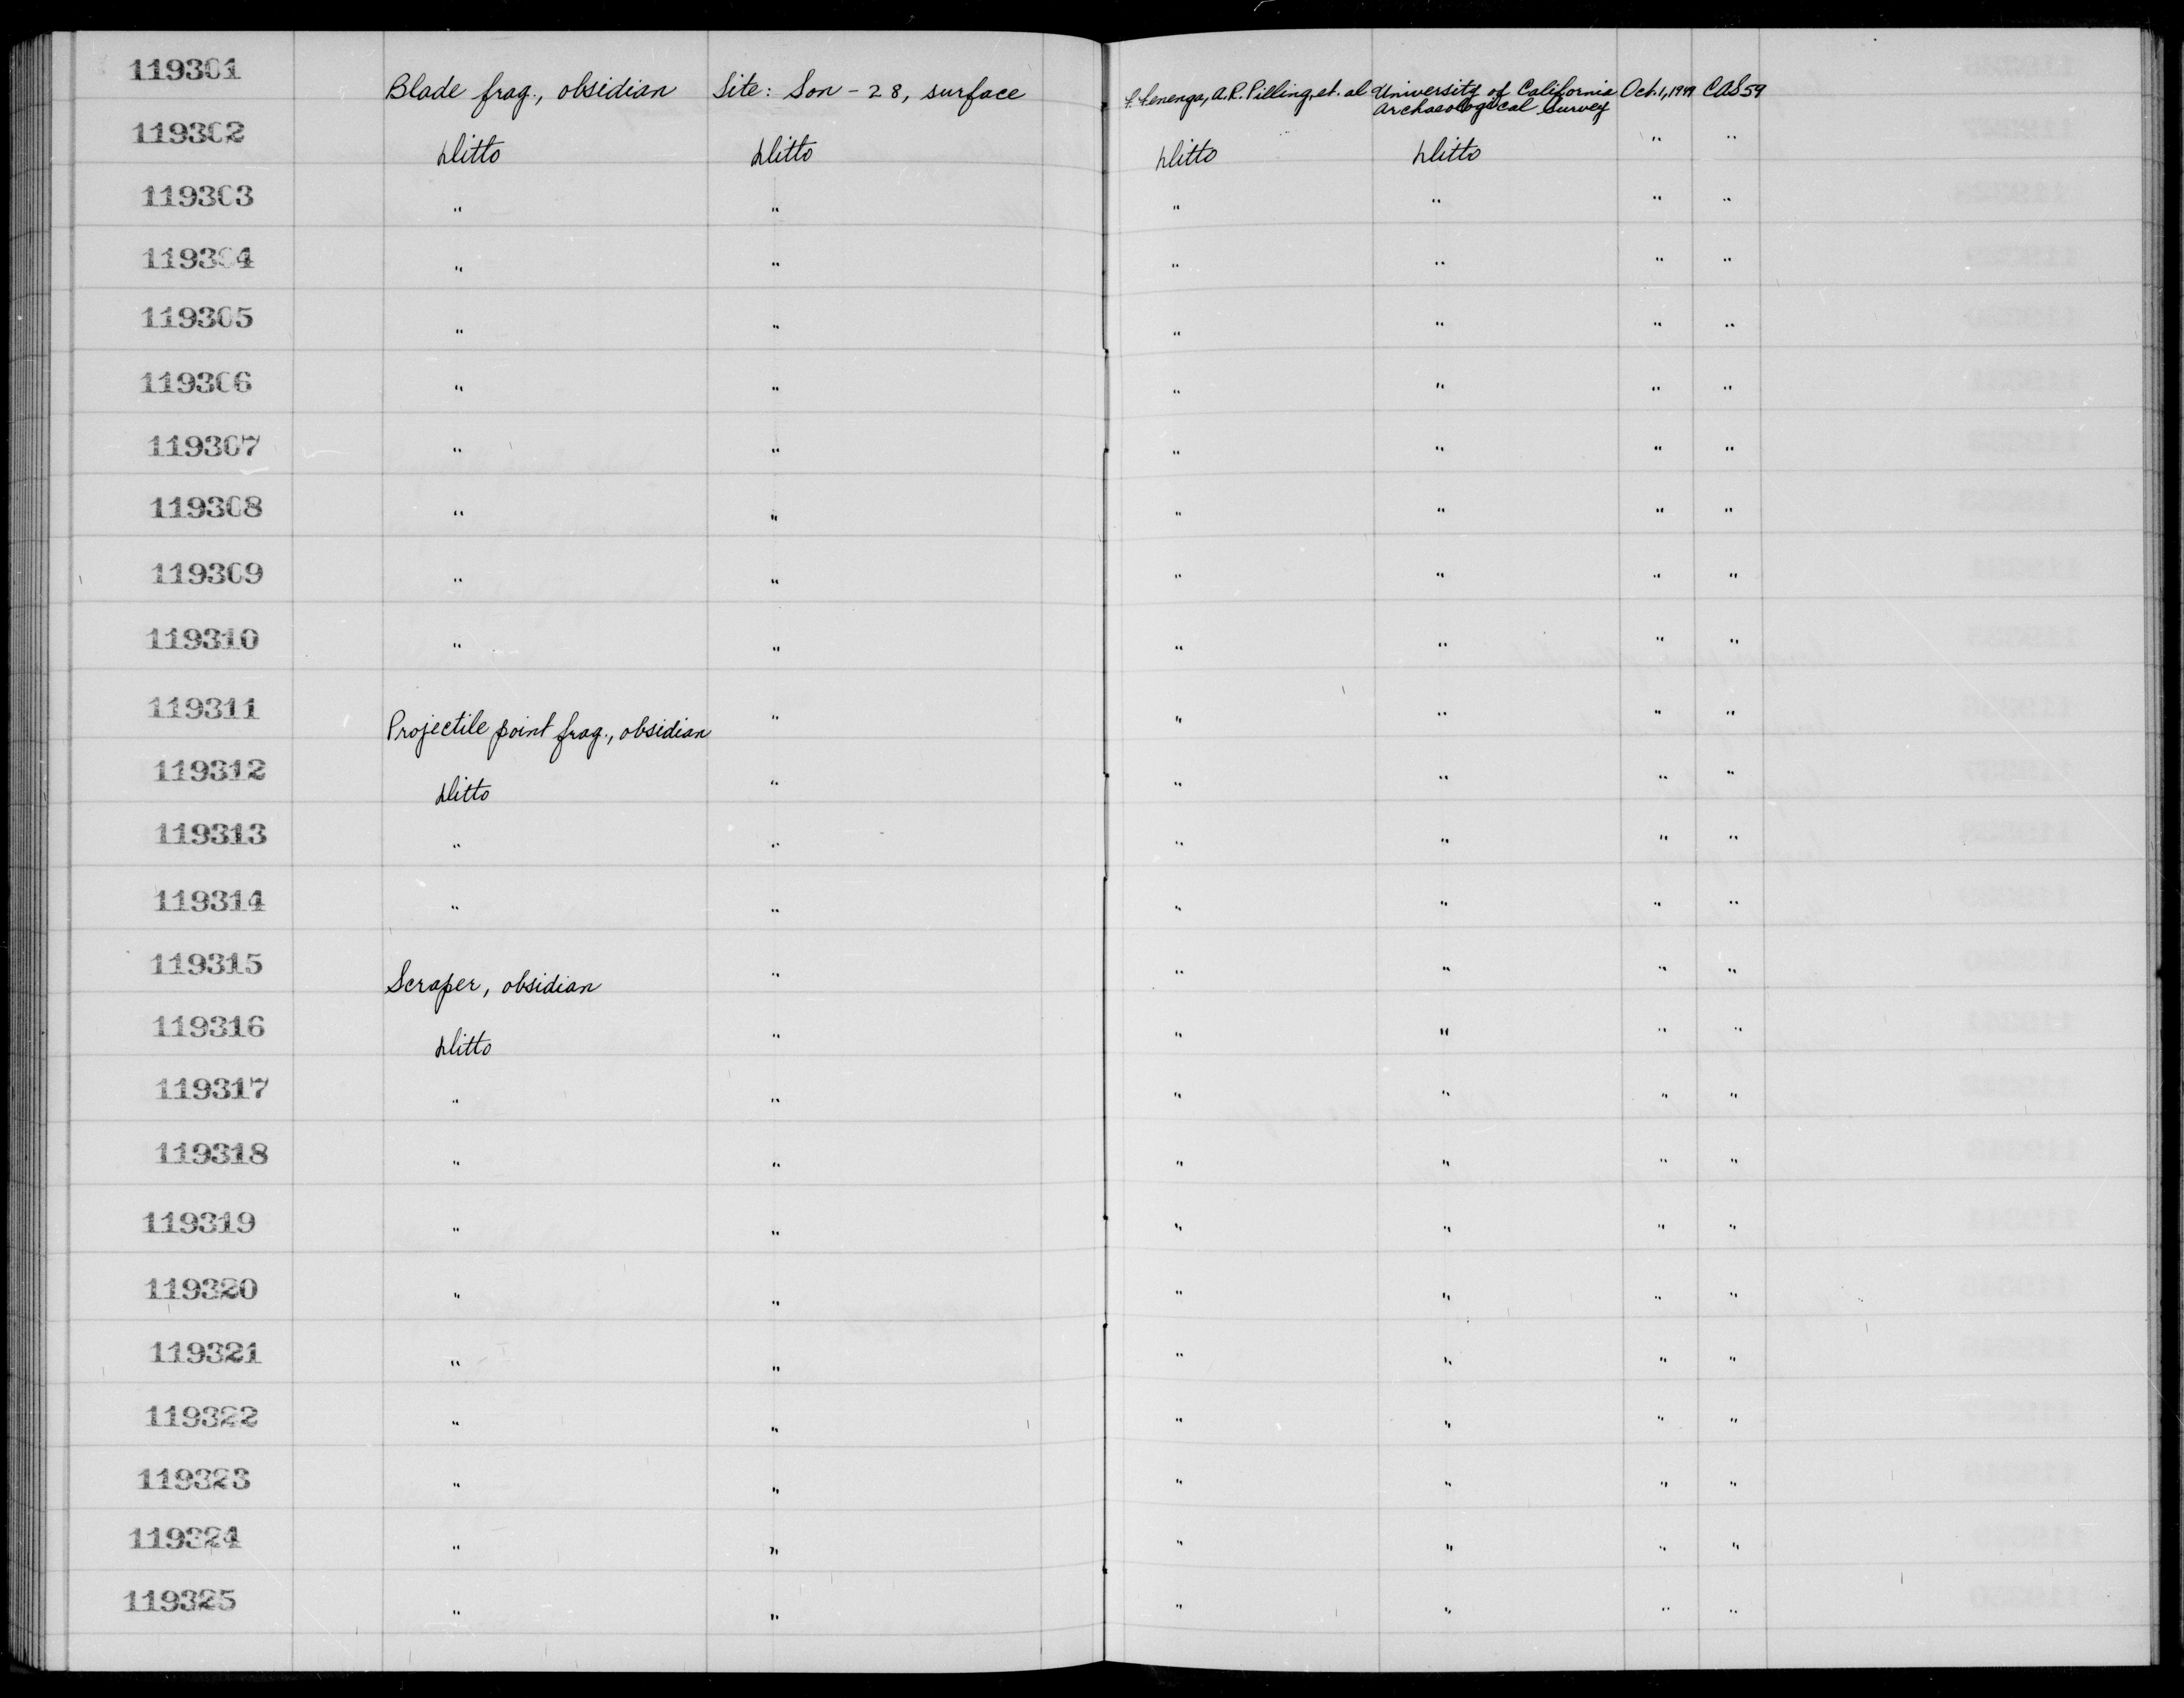 119301 Blade frag., obsidian Site: Son - 28, surface F. Fenenga, A.R. Pilling, et. al University of California Oct. 1, 1949 CAS 59
Archaeological Survey
119302 Ditto Ditto Ditto Ditto " "
119303 " " " " " "
119304 " " " " " "
119305 " " " " " "
119306 " " " " " "
119307 " " " " " "
119308 " " " " " "
119309 " " " " " "
119310 " " " " " "
119311 Projectile point frag., obsidian " " " " "
119312 Ditto " " " " "
119313 " " " " " "
119314 " " " " " "
119315 Scraper, obsidian " " " " "
119316 Ditto " " " " "
119317 " " " " " "
119318 " " " " " "
119319 " " " " " "
119320 " " " " " "
119321 " " " " " "
119322 " " " " " "
119323 " " " " " "
119324 " " " " " "
119325 " " " " " "